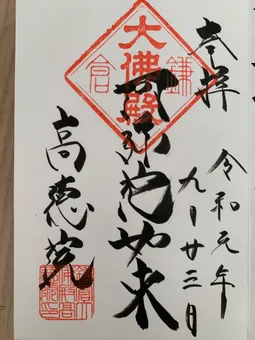 奉拝
令和元年
九月廿三日
鎌倉
大佛殿
阿弥陀如来
高徳院